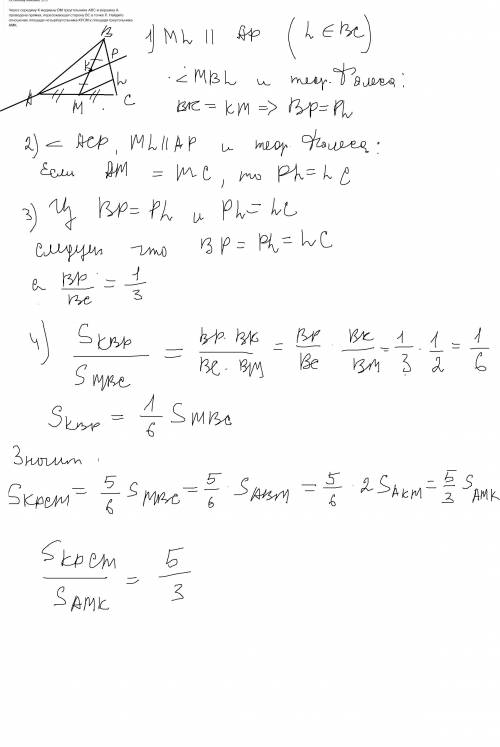 Через середину K медианы BM треугольника ABC и вершину A
проведена прямая, пересекающая сторону BC в точке P. Найдите
отношение площади четырёхугольника KPCM к площади треугольника
AMK.
B
K
P
L
A
M
C
1) ML || AP ( L ∈ BC)
∠MBL и теор. Фалеса:
BK = KM => BP = PL
2) < ACP, ML || AP и теор Фалеса:
Если AM = MC, то PL = LC
3) Из BP = PL и PL = LC
следует что BP = PL = LC
а BP/BC = 1/3
4) S KBP / S MBC = BP · BK / BC · BM = BP/BC · BK/BM = 1/3 · 1/2 = 1/6
S KBP = 1/6 S MBC
Значит .
S KPCM = 5/6 S MBC = 5/6 · S ABM = 5/6 · 2 S AKM = 5/3 S AMK
S KPCM / S AMK = 5/3